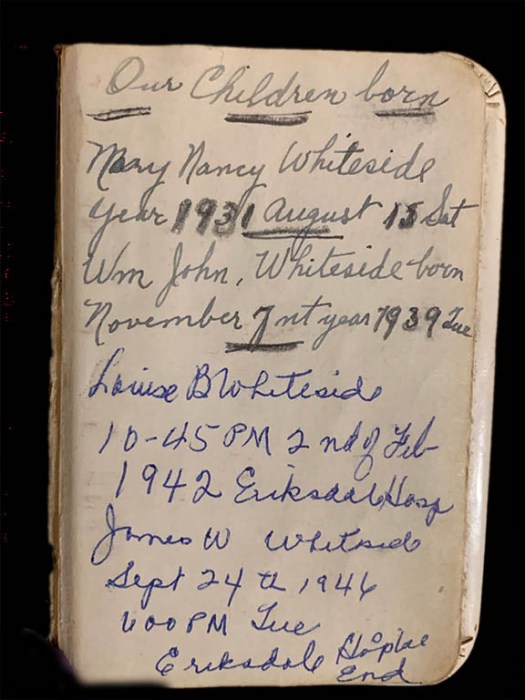 Our Children born
Mary Nancy Whiteside
Year 1931 August 15 Sat
Wm John, Whiteside born
November 7nt year 1939 Tue
Louise B Whiteside
10-45 PM 2nd of Feb
1942 Eriksdale Hosp
James W Whiteside
Sept 24th 1946
600 PM Tue
Eriksdale
End